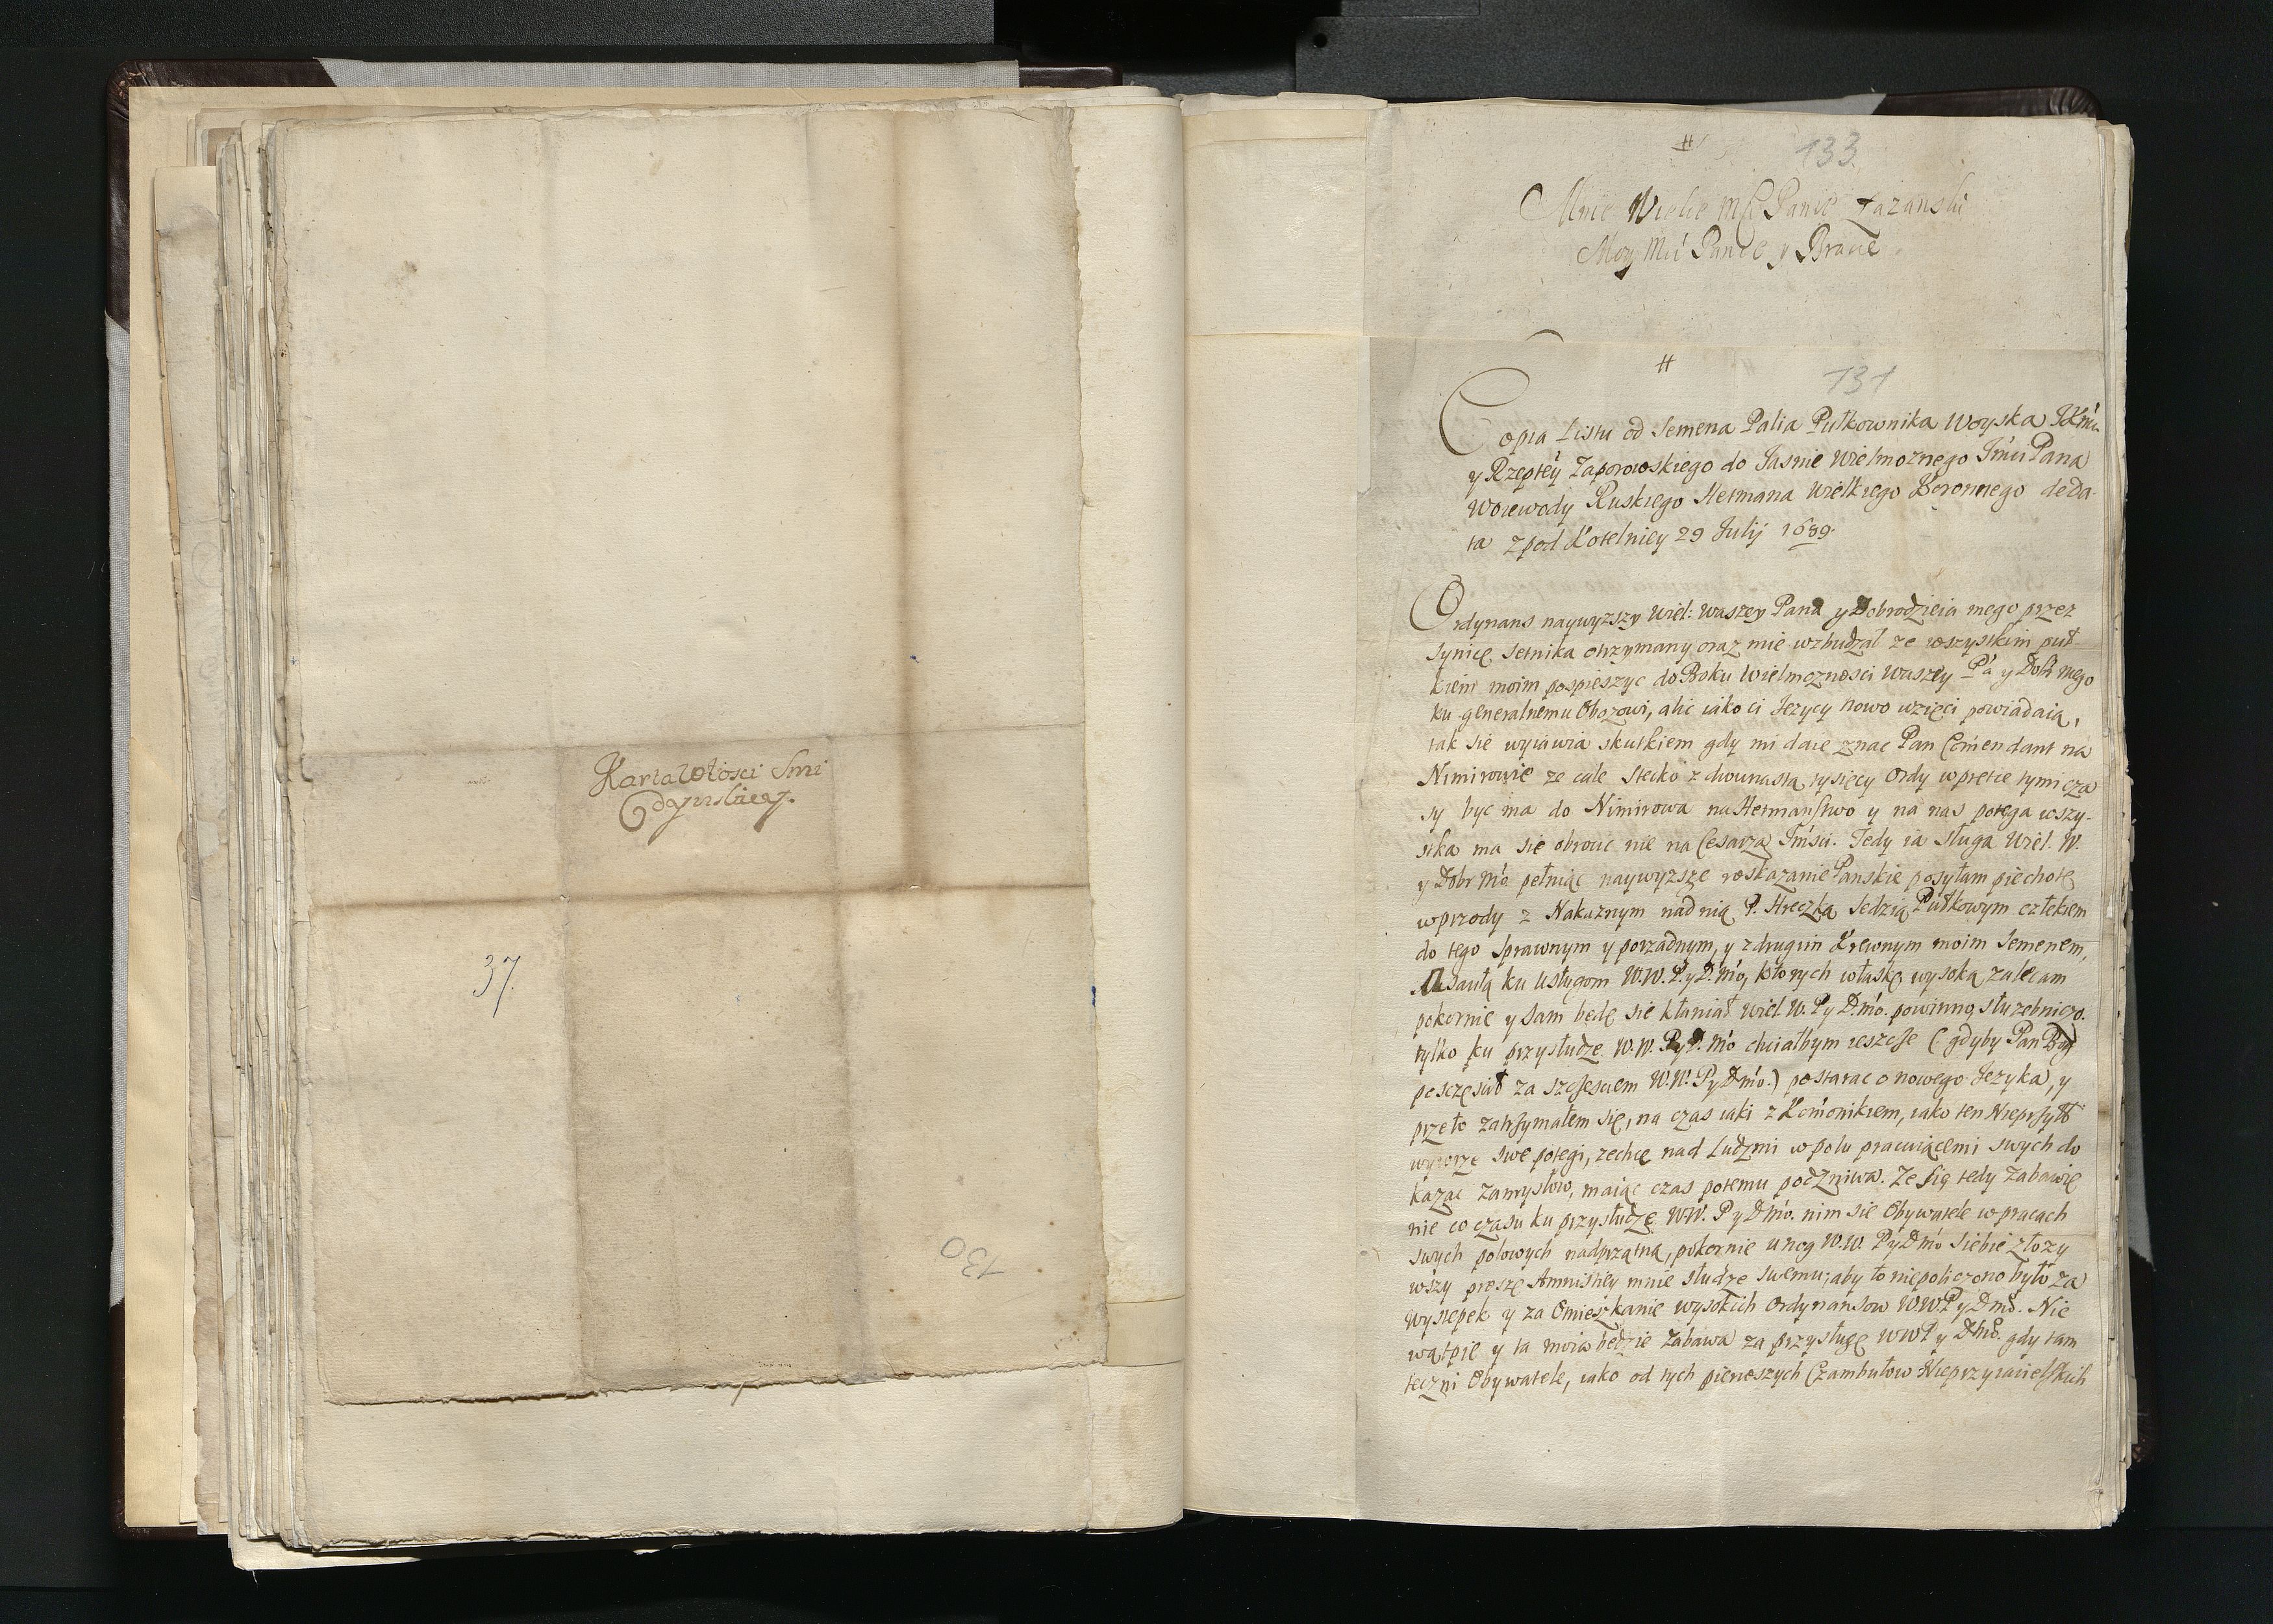 Karta Włości Imci
37.
130
#
133.
Mnie Wielce Mści Panie Łazanski
Moy Mści Panie y Bracie
#
131
Copia Listu od Semena Palia Pułkownika Woyska JKMci
y Rzeptey Zaporowskiego do Jasnie Wielmoznego Jmci Pana
Woiewody Ruskiego Hetmana Wielkiego Koronnego de Da-
ta z pod Kotelnicy 29 Julij 1689.
Ordynans naywyzszy Wiel: Waszey Pana y Dobrodzieia mego przez
Synicę Setnika otrzymany oraz mie wzbudzał ze wszystkim puł-
kiem moim pospieszyc do Boku Wielmoznosci Waszey Pa y Dobr mego
ku generalnemu Obozowi, alic iako ci Jezycy nowo wzięci powiadaią,
tak sie wyiawia skutkiem gdy mi daie znac Pan Comendant na
Nimirowie ze cale Stecko z dwunastą tysięcy Ordy w prętce tymi cza
sy byc ma do Nimirowa na Hetmanstwo y na nas potęga wszy-
stka ma sie obrocic nie na Cesarza Jmści. Tedy ia sługa Wiel. W.
y Dobr Mo pełniąc naywyzsze roskazanie Panskie posyłam piechotę
wprzody z Nakaznym nad nią P. Hreczką Sedzią Pułkowym człekiem
do tego sprawnym y porządnym, y z drugim Krewnym moim Semenem,
Assaułą ku usługom W.W. P. y D. mo, ktorych właskę wysoką zalecam
pokornie y sam będę sie kłaniał Wiel. W. P y D. mo. powinną słuzebniczo.
tylko ku przysłudze W.W. P y D. mo chciałbym ieszcze (gdyby Pan Bog
poszczęscił za szczesciem W.W. P y D mo.) postarac o nowego Jezyka, y
przeto zatrzymałem się, na czas iaki z Komonikiem, iako ten Nieprzyl
wywrze swe potęgi, zechce nad Ludzmi w polu pracuiącemi swych do
kazac zamysłow, maiąc czas potemu pod Zniwa. Ze się tedy zabawię
nie co czasu ku przysłudze WW. P y D mo. nim sie Obywatele w pracach
swych polowych nadprzątną, pokornie u nog W.W. P y D mo siebie złozy
wszy proszę Amnistiey mnie słudze swemu; aby to niepoliczono było za
Wystepek y za Omieszkanie wysokich Ordynansow W.W. P y D mo. Nie
wątpię y ta moia będzie Zabawa za przysługę WW P y D mo. gdy tam
teczni Obywatele, iako od tych pierwszych Czambułow Nieprzyiacielskich